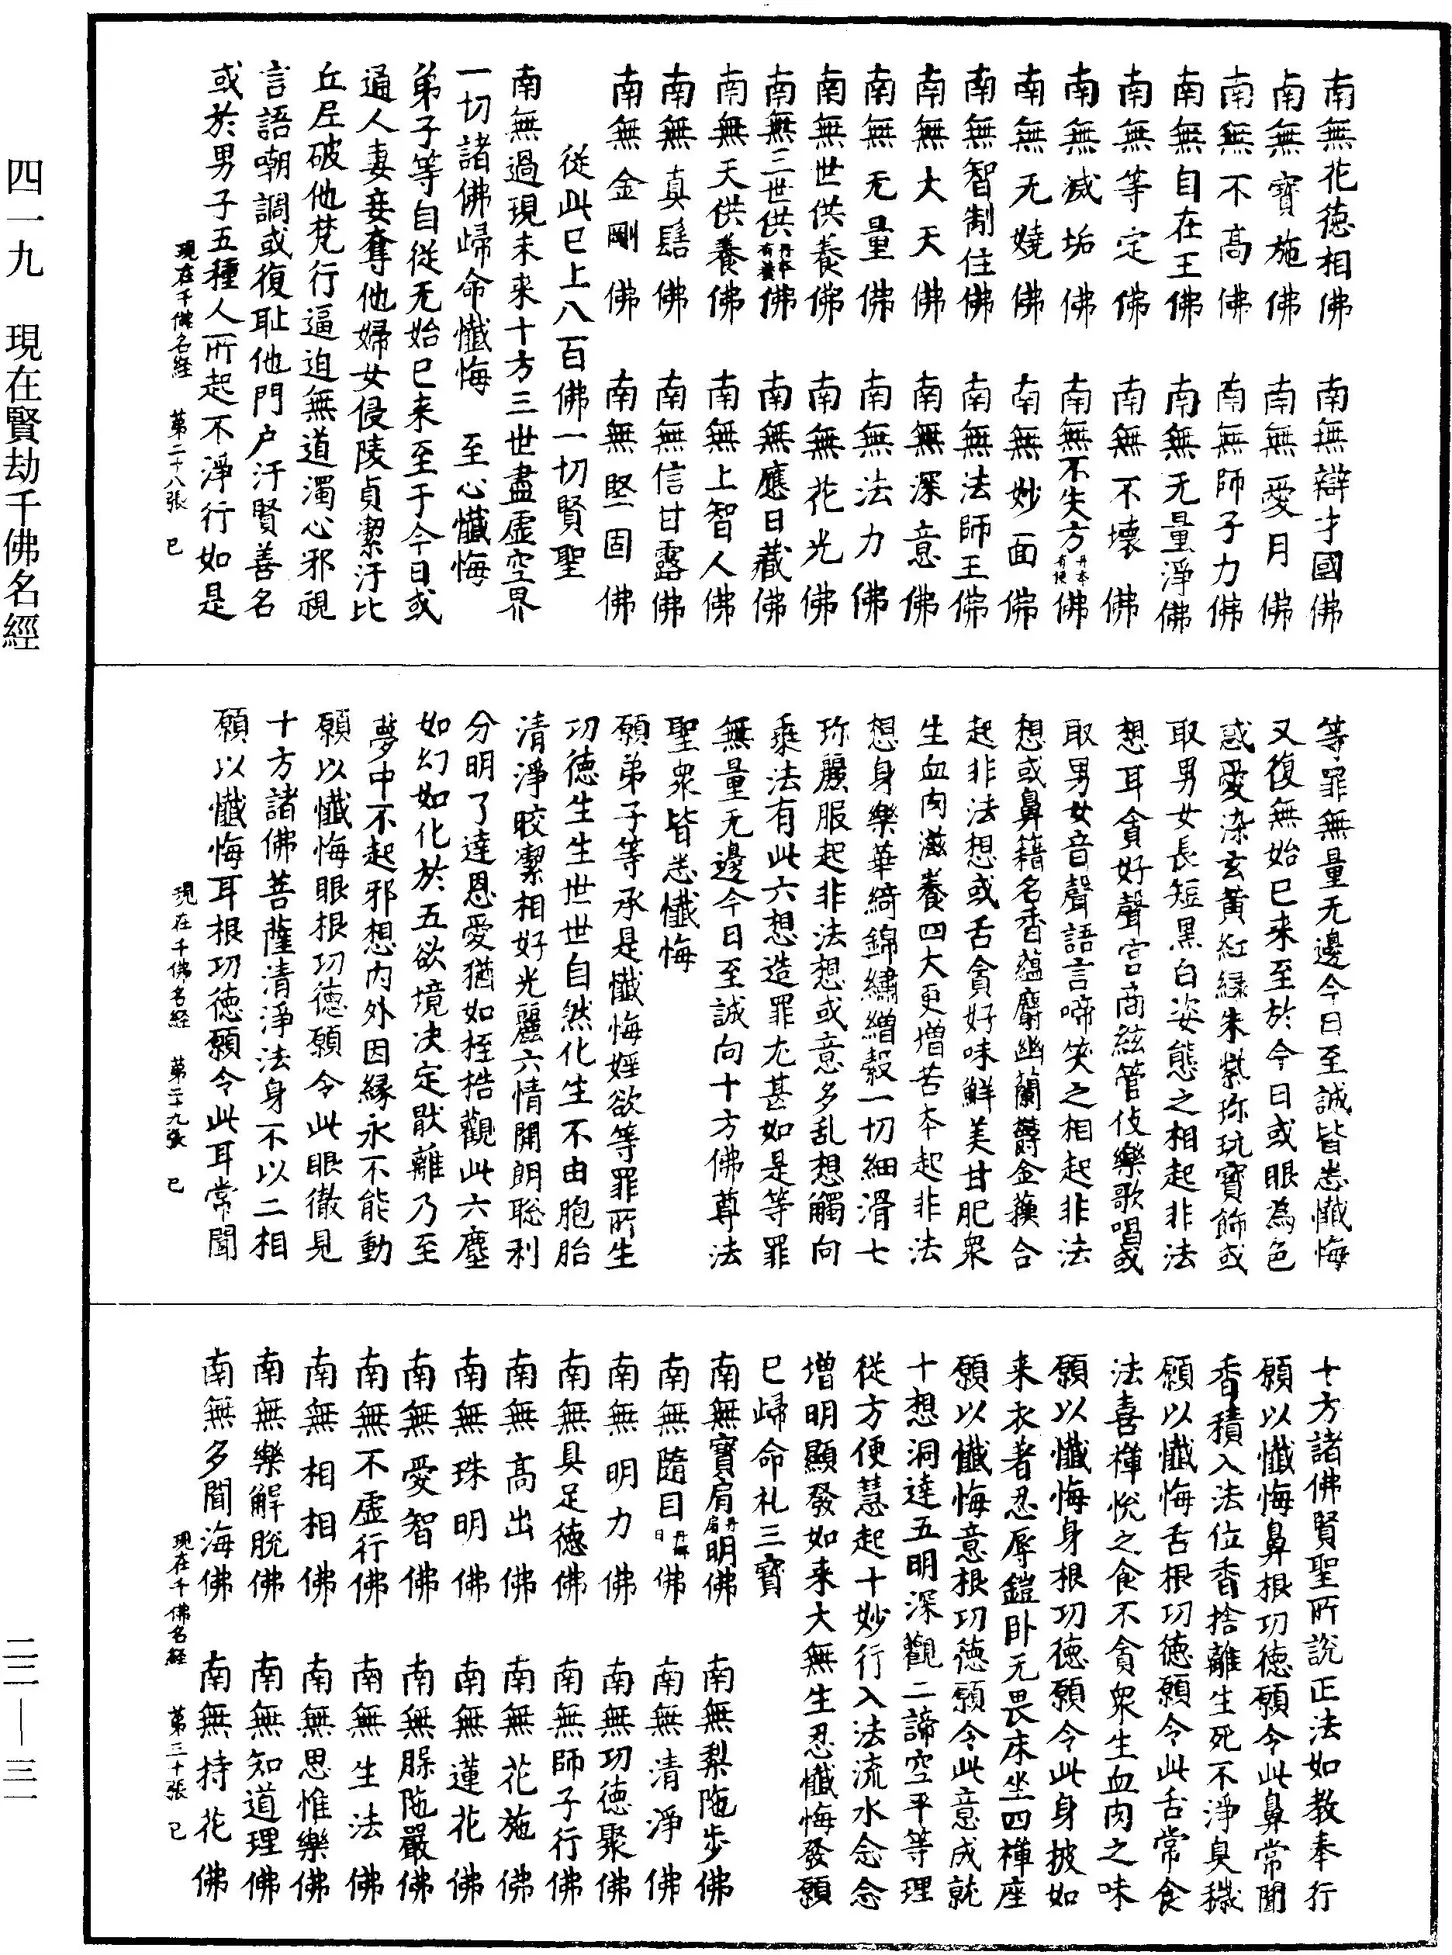 南無花德相佛　南無辯才國佛
南無寶施佛　南無愛月佛
南無不高佛　南無師子力佛
南無自在王佛　南無无量淨佛
南無等定佛　南無不壞佛
南無滅垢佛　南無不失方丹本有便佛
南無无嬈佛　南無妙面佛
南無智制住佛　南無法師王佛
南無大天佛　南無深意佛
南無无量佛　南無法力佛
南無世供養佛　南無花光佛
南無三世供丹本有養佛　南無應日藏佛
南無天供養佛　南無上智人佛
南無真髻佛　南無信甘露佛
南無金剛佛　南無堅固佛
從此已上八百佛一切賢聖
南無過現未来十方三世盡虛空界
一切諸佛歸命懺悔　至心懺悔
弟子等自從无始已来至于今日或
通人妻妾奪他婦女侵陵貞潔汙比
丘尼破他梵行逼迫無道濁心邪視
言語嘲調或復恥他門户汙賢善名
或於男子五種人所起不淨行如是
現在千佛名経　第二十八張　已
等罪無量无邊今日至誠皆悉懺悔
又復無始已来至於今日或眼為色
惑愛染玄黃紅緑朱紫珎玩寶飾或
取男女長短黑白姿態之相起非法
想耳貪好聲宫商絲管伎樂歌唱或
取男女音聲語言啼笑之相起非法
想或鼻籍名香藴麝幽蘭欝金蘓合
起非法想或舌貪好味鮮美甘肥衆
生血肉滋養四大更增苦本起非法
想身樂華綺錦繡繒縠一切細滑七
珎麗服起非法想或意多乱想觸向
乘法有此六想造罪尤甚如是等罪
無量无邊今日至誠向十方佛尊法
聖衆皆悉懺悔
願弟子等承是懺悔婬欲等罪所生
功德生生世世自然化生不由胞胎
清淨皎潔相好光麗六情開朗聡利
分明了達恩愛猶如桎梏觀此六塵
如幻如化於五欲境决定猒離乃至
夢中不起邪想内外因緣永不能動
願以懺悔眼根功德願令此眼徹見
十方諸佛菩薩清淨法身不以二相
願以懺悔耳根功德願令此耳常聞
現在千佛名経　第二十九張　已
十方諸佛賢聖所說正法如教奉行
願以懺悔鼻根功德願令此鼻常聞
香積入法位香捨離生死不淨臭穢
願以懺悔舌根功德願令此舌常食
法喜禅悅之食不貪衆生血肉之味
願以懺悔身根功德願令此身披如
来衣著忍辱鎧卧无畏床坐四禅座
願以懺悔意根功德願令此意成就
十想洞達五明深觀二諦空平等理
從方便慧起十妙行入法流水念念
增明顯發如来大無生忍懺悔發願
已歸命礼三寶
南無寶肩丹眉明佛　南無梨陁步佛
南無隨目丹作日佛　南無清淨佛
南無明力佛　南無功德聚佛
南無具足德佛　南無師子行佛
南無高出佛　南無花施佛
南無珠明佛　南無蓮花佛
南無愛智佛　南無䐧陁嚴佛
南無不虛行佛　南無生法佛
南無相相佛　南無思惟樂佛
南無樂解脫佛　南無知道理佛
南無多聞海佛　南無持花佛
現在千佛名経　第三十張　已
四一九　現在賢劫千佛名經
二二—三一